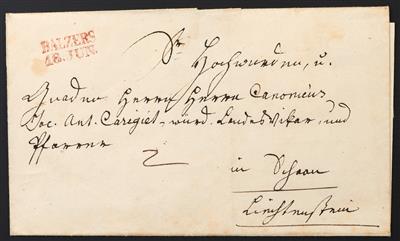 BALZERS
18. JUN.
Sr Hochwürden, u.
Gnaden Herrn Herrn Canonicus
Joc. Ant. Carigiet, würd. Landesvikar, und
Pfarrer
2
in Schaan
Liechtenstein